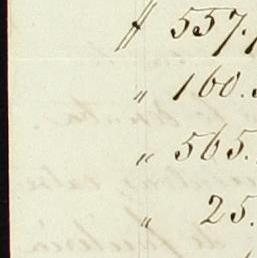 ƒ 557.
" 160.
" 565.
" 25.